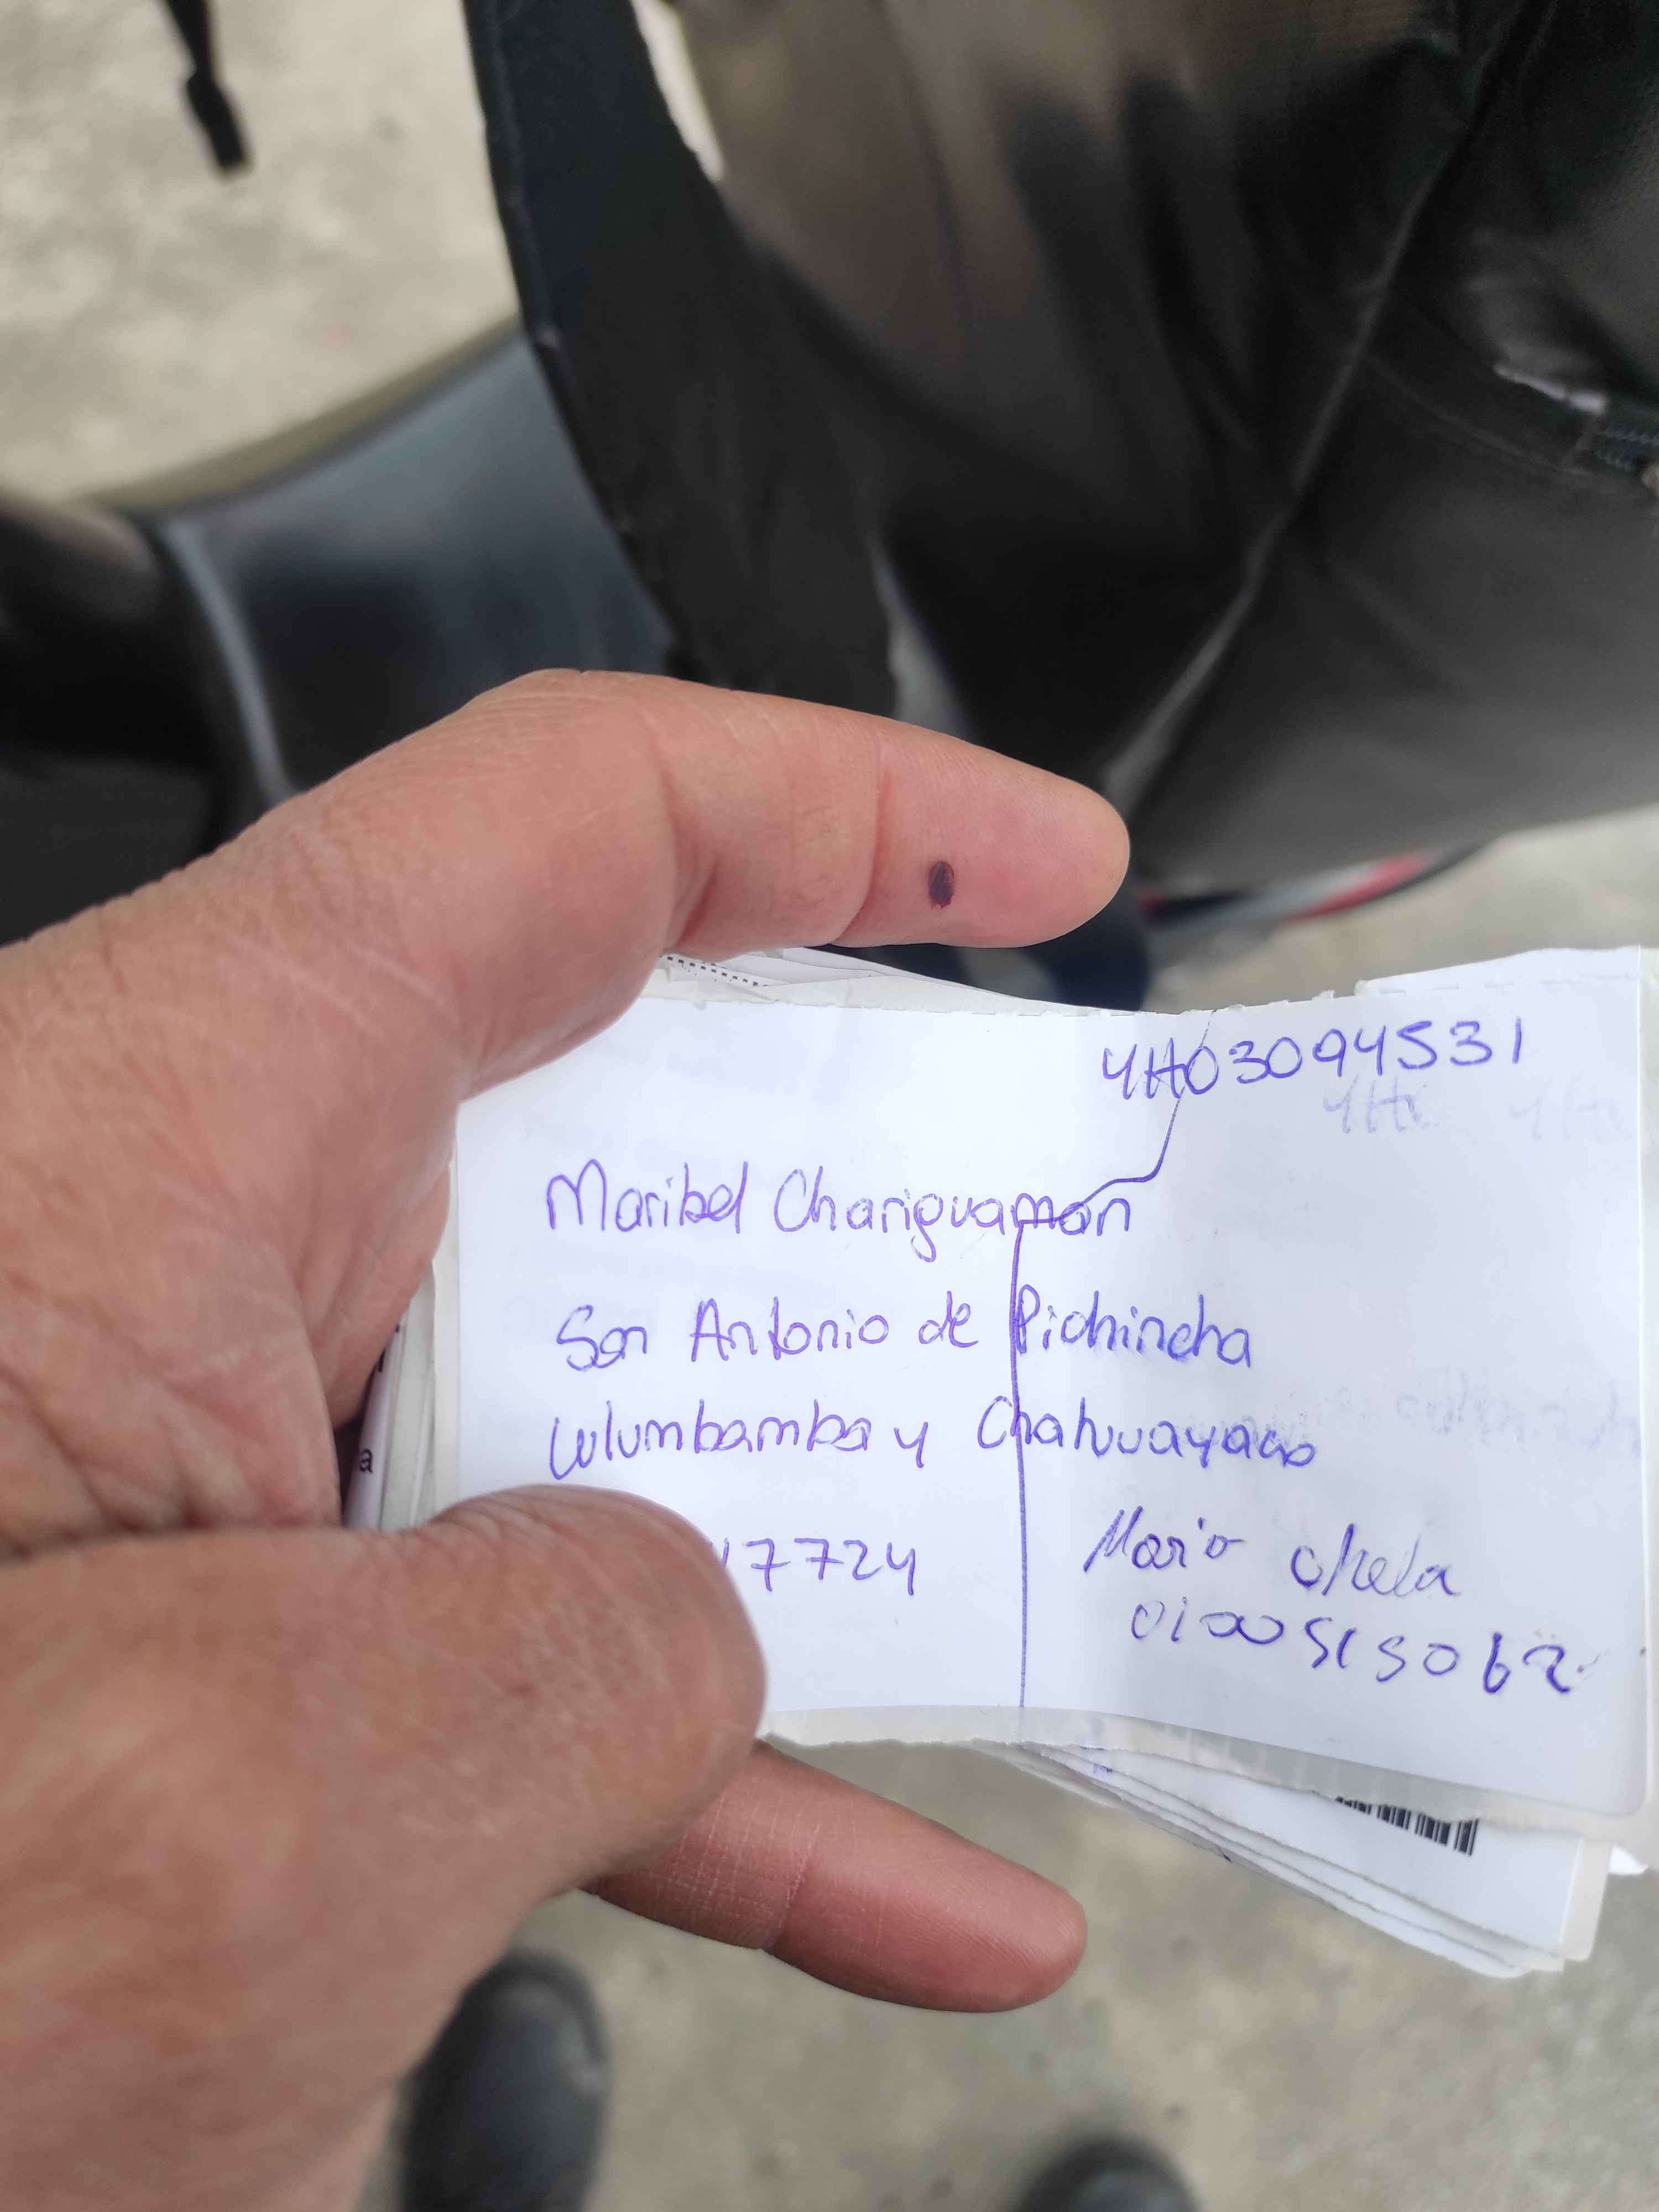 4H03094531
Maribel Chariguaman
San Antonio de Pichincha
Lulumbamba y Chahuayaco
7724
Mario
a